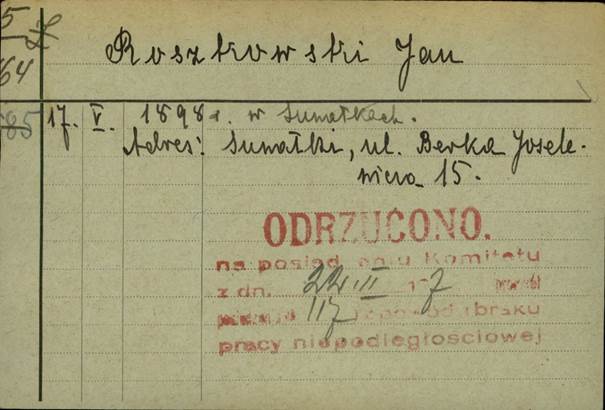 5
64
Rosztkowski Jan
85 17. V. 1898 r. w Suwałkach.
Adres: Suwałki, ul. Berka Josele-
wicza 15.
ODRZUCONO.
na posiedzeniu Komitetu
z dn. 22 II 7
117 z powodu braku
pracy niepodległościowej